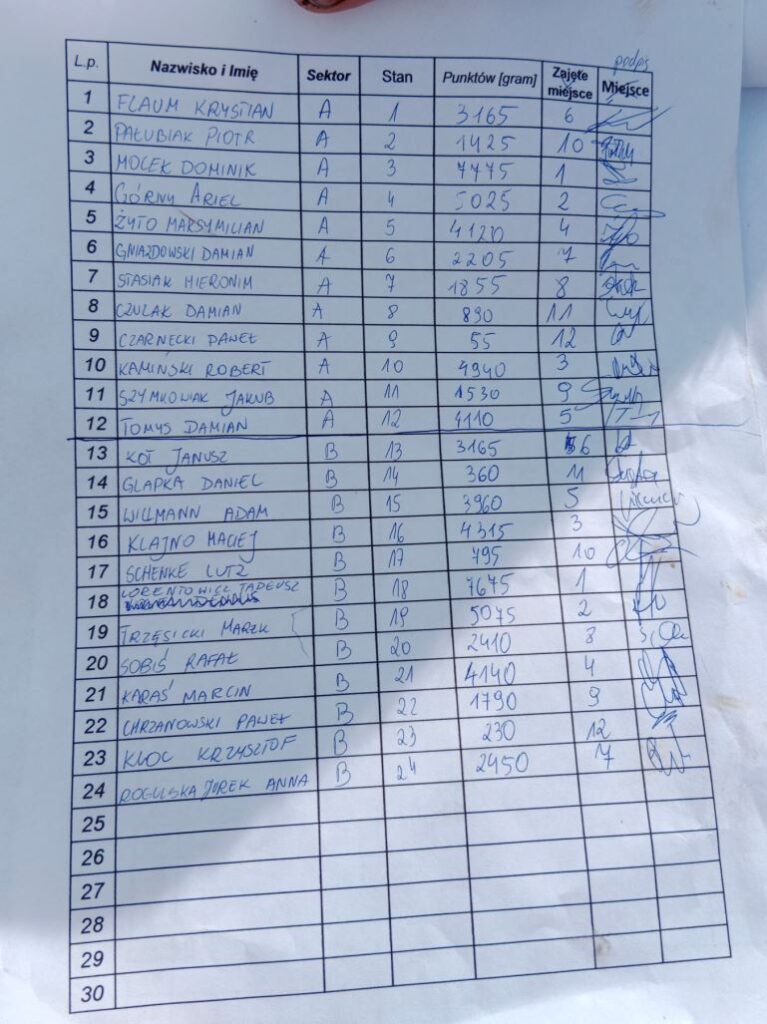 podpis
L.p. Nazwisko i Imię Sektor Stan Punktów [gram] Zajęte miejsce Miejsce
1 FLAUM KRYSTIAN A 1 3165 6
2 PAŁUBIAK PIOTR A 2 1425 10
3 MOCEK DOMINIK A 3 7775 1
4 GÓRNY ARIEL A 4 5025 2
5 ŻYTO MAKSYMILIAN A 5 4120 4
6 GNIAZDOWSKI DAMIAN A 6 2205 7
7 STASIAK HIERONIM A 7 1855 8
8 CZULAK DAMIAN A 8 890 11
9 CZARNECKI PAWEŁ A 9 55 12
10 KAMIŃSKI ROBERT A 10 4940 3
11 SZYMKOWIAK JAKUB A 11 1530 9
12 TOMYS DAMIAN A 12 4110 5
13 KOT JANUSZ B 13 3165 6
14 GLAPKA DANIEL B 14 360 11
15 WILLMANN ADAM B 15 3960 5
16 KLAJNO MACIEJ B 16 4315 3
17 SCHENKE LUTZ B 17 795 10
18 LORENTOWICZ TADEUSZ B 18 7675 1
19 TRZĘSICKI MAREK B 19 5075 2
20 SOBIŚ RAFAŁ B 20 2410 8
21 KARAŚ MARCIN B 21 4140 4
22 CHRZANOWSKI PAWEŁ B 22 1790 9
23 KLOC KRZYSZTOF B 23 230 12
24 ROGULSKA JOREK ANNA B 24 2450 7
25
26
27
28
29
30